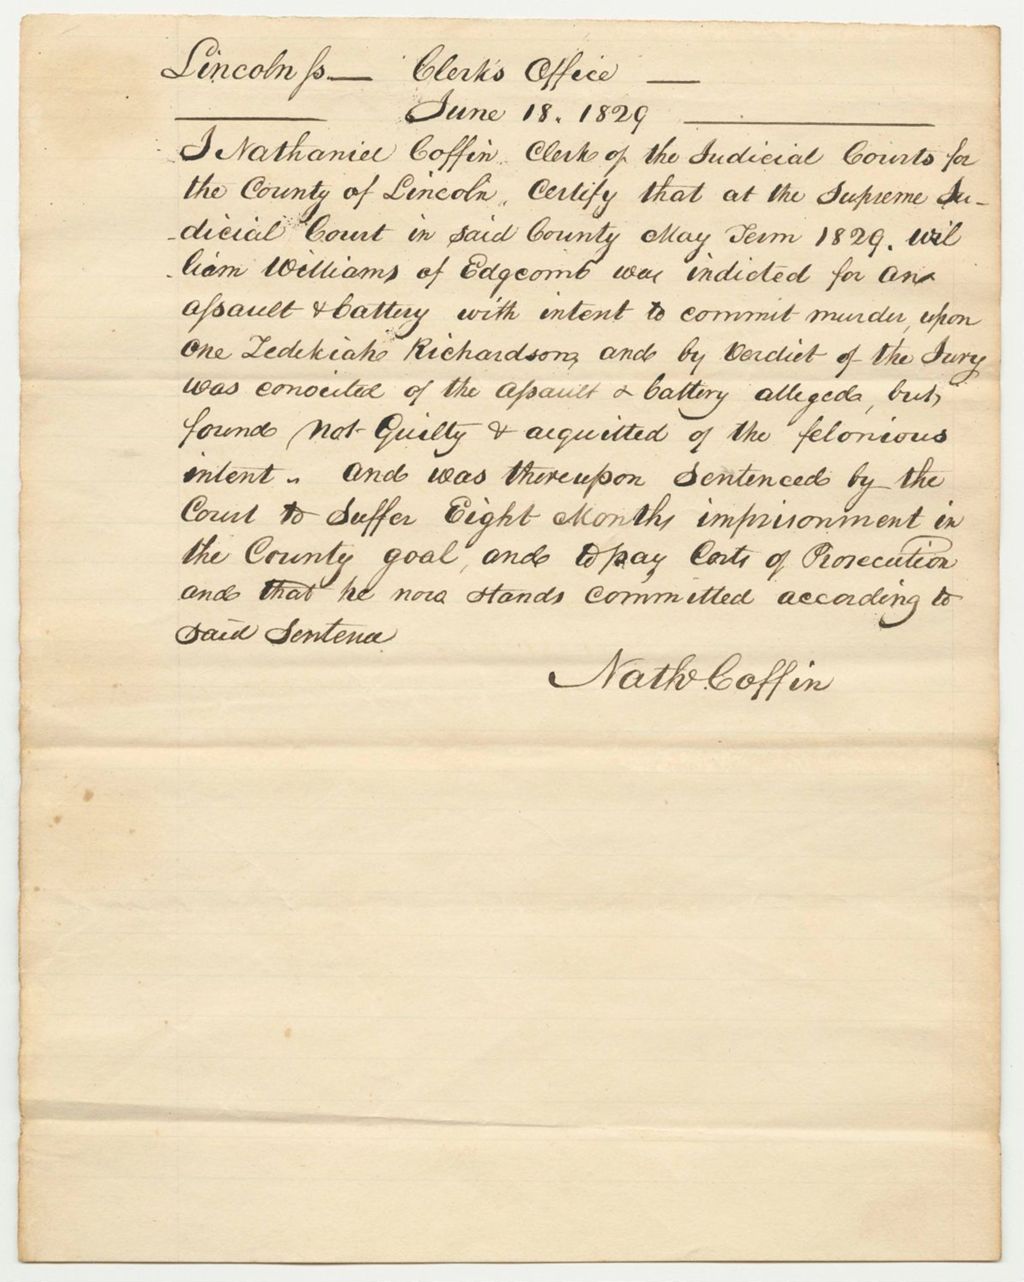 Lincoln ss — Clerk's Office —
June 18. 1829
I Nathaniel Coffin Clerk of the Judicial Courts for
the County of Lincoln, Certify that at the Supreme Ju-
-dicial Court in said County May Term 1829. Wil
-liam Williams of Edgcomb was indicted for an
assault & battery with intent to commit murder, upon
one Zedekiah Richardson, and by Verdict of the Jury
was convicted of the assault & battery alleged, but,
found Not Guilty & acquitted of the felonious
intent. And was thereupon Sentenced by the
Court to Suffer Eight Months imprisonment in
the County goal, and to pay Costs of Prosecution
and that he now stands committed according to
said Sentence
Nathl Coffin